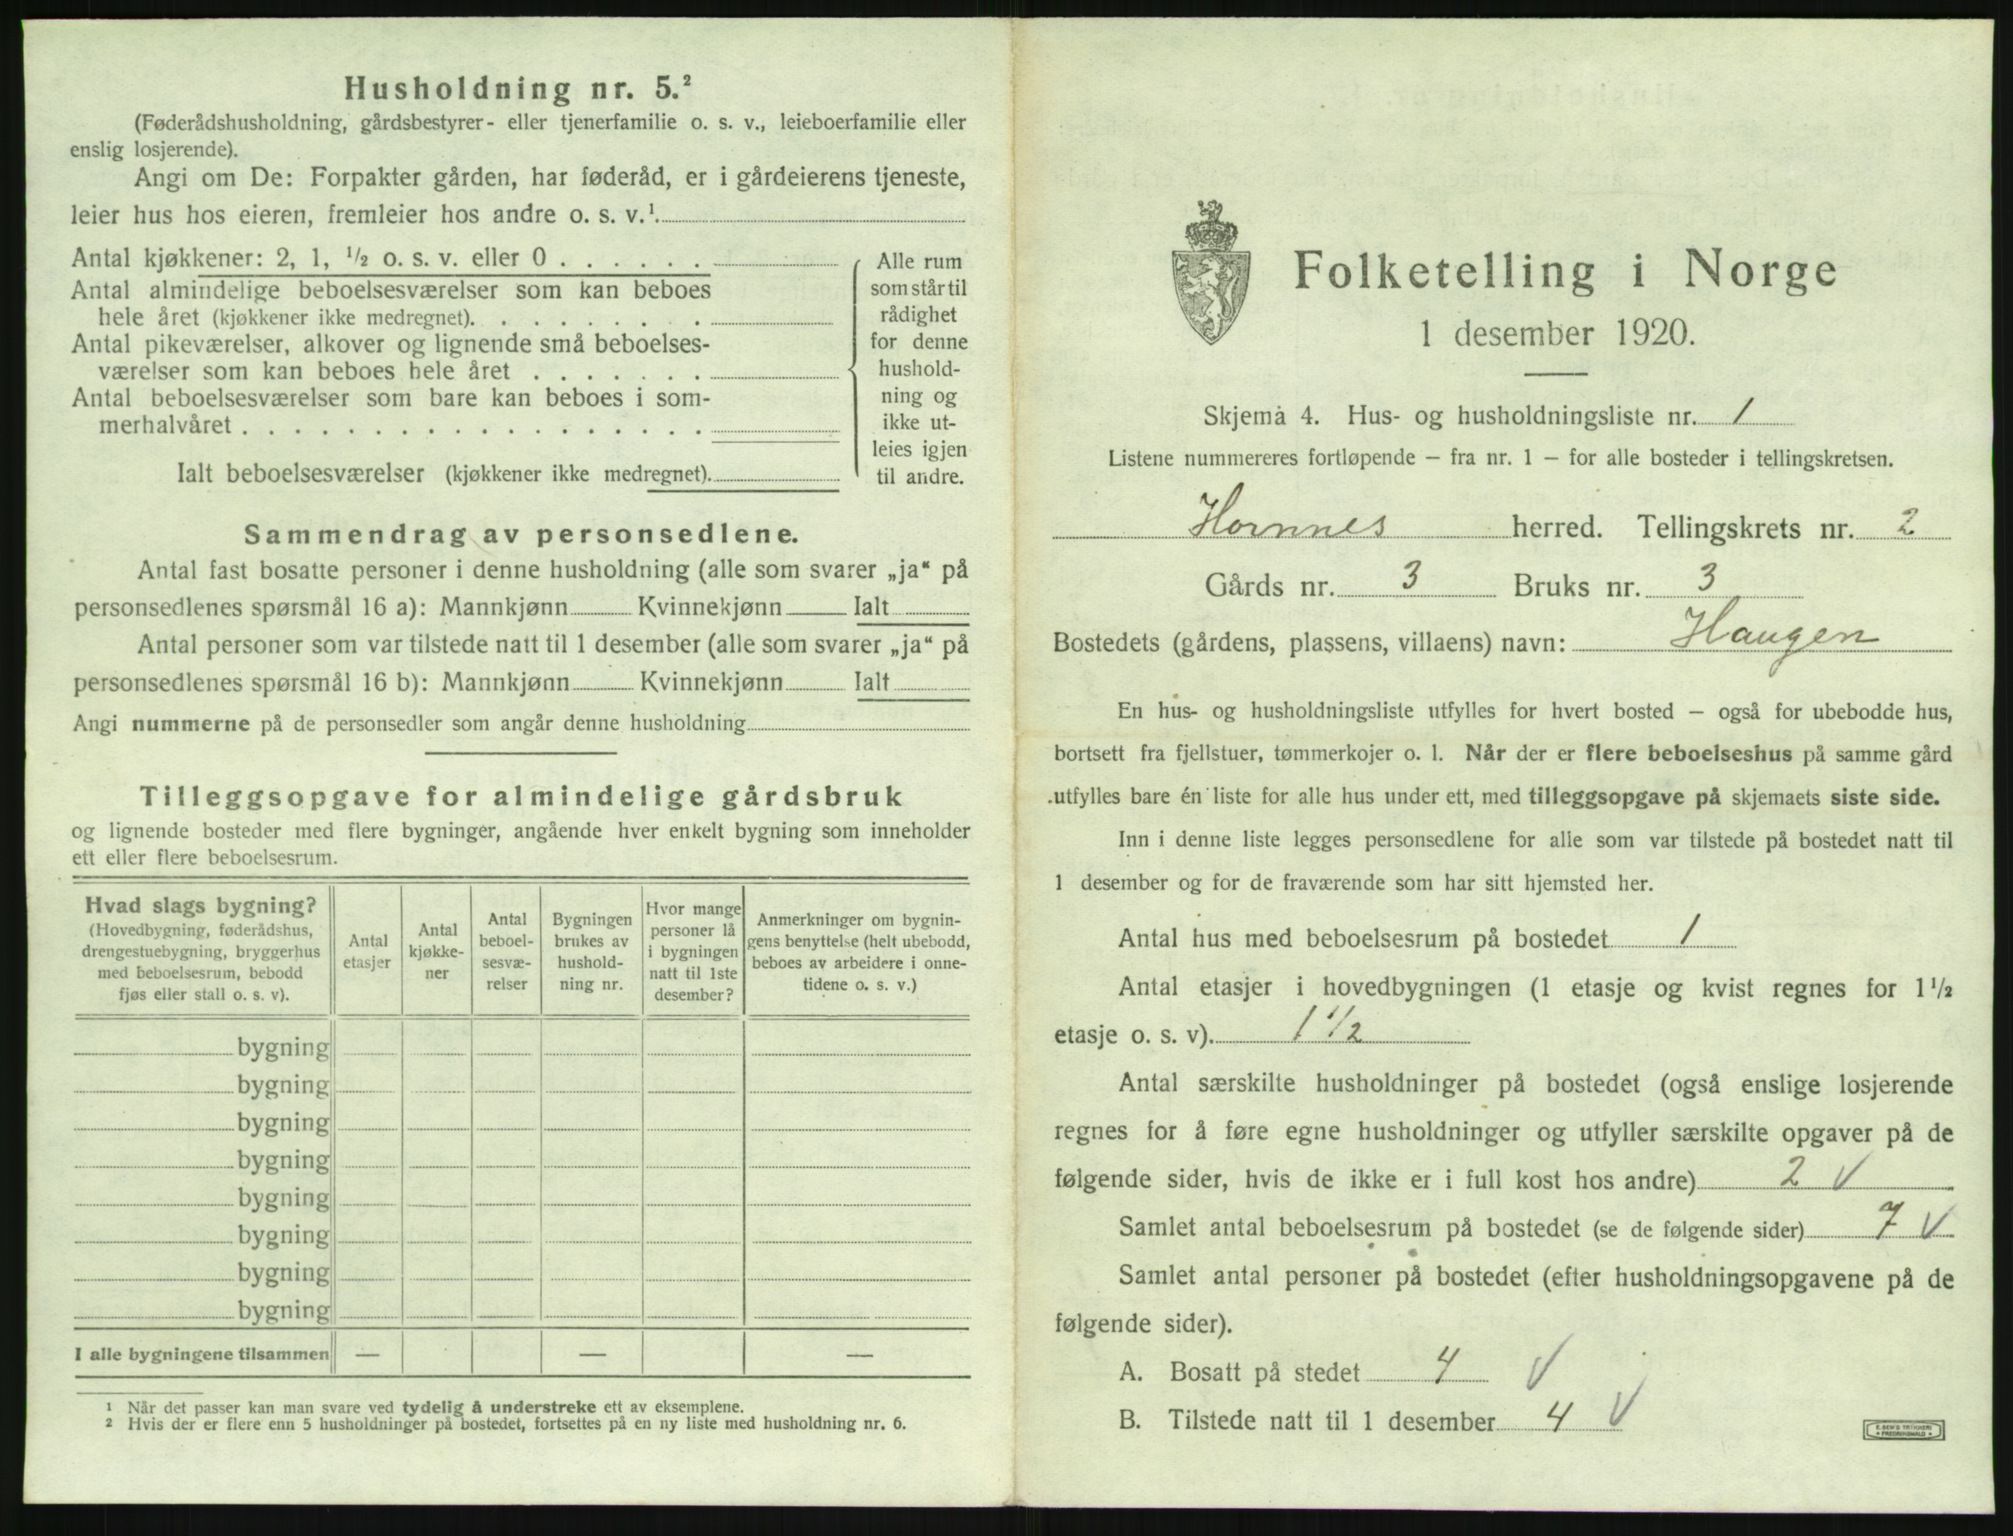 Husholdning nr. 5.²
(Føderådshusholdning, gårdsbestyrer- eller tjenerfamilie o. s. v., leieboerfamilie eller
enslig losjerende).
Angi om De: Forpakter gården, har føderåd, er i gårdeierens tjeneste,
leier hus hos eieren, fremleier hos andre o. s. v.¹
Antal kjøkkener: 2, 1, ½ o. s. v. eller 0 . . . . . .
Antal almindelige beboelsesværelser som kan beboes
hele året (kjøkkener ikke medregnet). . . . . . . . .
Antal pikeværelser, alkover og lignende små beboelses-
værelser som kan beboes hele året . . . . . . .
Antal beboelsesværelser som bare kan beboes i som-
merhalvåret . . . . . . . . . . . . . . . . . .
Ialt beboelsesværelser (kjøkkener ikke medregnet).
Alle rum
som står til
rådighet
for denne
hushold-
ning og
ikke ut-
leies igjen
til andre.
Sammendrag av personsedlene.
Antal fast bosatte personer i denne husholdning (alle som svarer „ja“ på
personsedlenes spørsmål 16 a): Mannkjønn Kvinnekjønn Ialt
Antal personer som var tilstede natt til 1 desember (alle som svarer „ja“ på
personsedlenes spørsmål 16 b): Mannkjønn Kvinnekjønn Ialt
Angi nummerne på de personsedler som angår denne husholdning
Tilleggsopgave for almindelige gårdsbruk
og lignende bosteder med flere bygninger, angående hver enkelt bygning som inneholder
ett eller flere beboelsesrum.
Hvad slags bygning?
(Hovedbygning, føderådshus,
drengestuebygning, bryggerhus
med beboelsesrum, bebodd
fjøs eller stall o. s. v).
Antal
etasjer
Antal
kjøkke-
ner
Antal
beboel-
sesvæ-
relser
Bygningen
brukes av
hushold-
ning nr.
Hvor mange
personer lå
i bygningen
natt til 1ste
desember?
Anmerkninger om bygnin-
gens benyttelse (helt ubebodd,
beboes av arbeidere i onne-
tidene o. s. v.)
bygning
bygning
bygning
bygning
bygning
bygning
bygning
bygning
I alle bygningene tilsammen — — —
¹ Når det passer kan man svare ved tydelig å understreke ett av eksemplene.
² Hvis der er flere enn 5 husholdninger på bostedet, fortsettes på en ny liste med husholdning nr. 6.
Folketelling i Norge
1 desember 1920.
Skjema 4. Hus- og husholdningsliste nr. 1
Listene nummereres fortløpende – fra nr. 1 – for alle bosteder i tellingskretsen.
Hornnes herred. Tellingskrets nr. 2
Gårds nr. 3 Bruks nr. 3
Bostedets (gårdens, plassens, villaens) navn: Haugen
En hus- og husholdningsliste utfylles for hvert bosted – også for ubebodde hus,
bortsett fra fjellstuer, tømmerkojer o. l. Når der er flere beboelseshus på samme gård
utfylles bare én liste for alle hus under ett, med tilleggsopgave på skjemaets siste side.
Inn i denne liste legges personsedlene for alle som var tilstede på bostedet natt til
1 desember og for de fraværende som har sitt hjemsted her.
Antal hus med beboelsesrum på bostedet 1
Antal etasjer i hovedbygningen (1 etasje og kvist regnes for 1½
etasje o. s. v). 1½
Antal særskilte husholdninger på bostedet (også enslige losjerende
regnes for å føre egne husholdninger og utfyller særskilte opgaver på de
følgende sider, hvis de ikke er i full kost hos andre) 2 V
Samlet antal beboelsesrum på bostedet (se de følgende sider) 7 V
Samlet antal personer på bostedet (efter husholdningsopgavene på de
følgende sider).
A. Bosatt på stedet 4 V
B. Tilstede natt til 1 desember 4 V